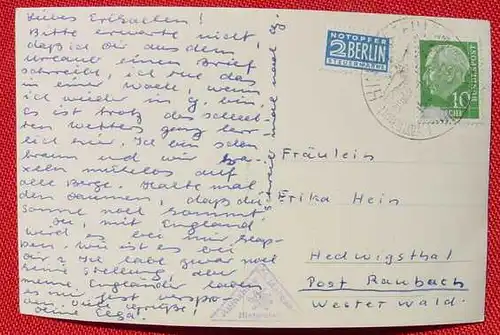 Liebes Erikallen!
Bitte erwarte nicht,
daß ich dir aus dem
Urlaub einen Brief
schreibe, ich tue das
in einer Woche, wenn
ich wieder in g. bin.
Es ist trotz des schlech-
ten Wetters ganz herr-
lich hier. Ich bin schon
braun und wir kra-
xeln mühelos auf
alle Berge. Halte mal
den Daumen, daß die
Sonne noch kommt
Du, mit England
wird es bei mir klap-
pen. Wie ist es bei
dir? Ich habe zwar noch
keine Stellung, aber
meine Engländer haben
es mir fest verspro-
chen. Viele Grüße!
deine Elga.
Schreib mal nach
NOTOPFER
2 BERLIN
STEUERMARKE
DEUTSCHE BUNDESPOST
10
Fräulein
Erika Hein
Hedwigsthal
Post Raubach
Westerwald.